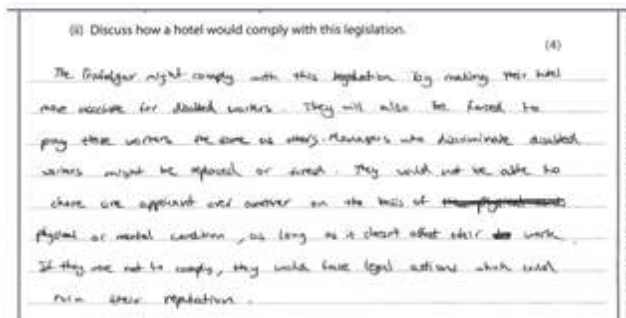 (ii) Discuss how a hotel would comply with this legislation.
(4)
The Trafalgar might comply with this legislation by making their hotel
more accessible for disabled workers. They will also be forced to
pay these workers the same as others. Managers who discriminate disabled
workers might be replaced or fired. They would not be able to
chose one applicant over another on the basis of
physical or mental condition, as long as it doesnt affect their work.
If they were not to comply, they would face legal actions which could
ruin their reputation.